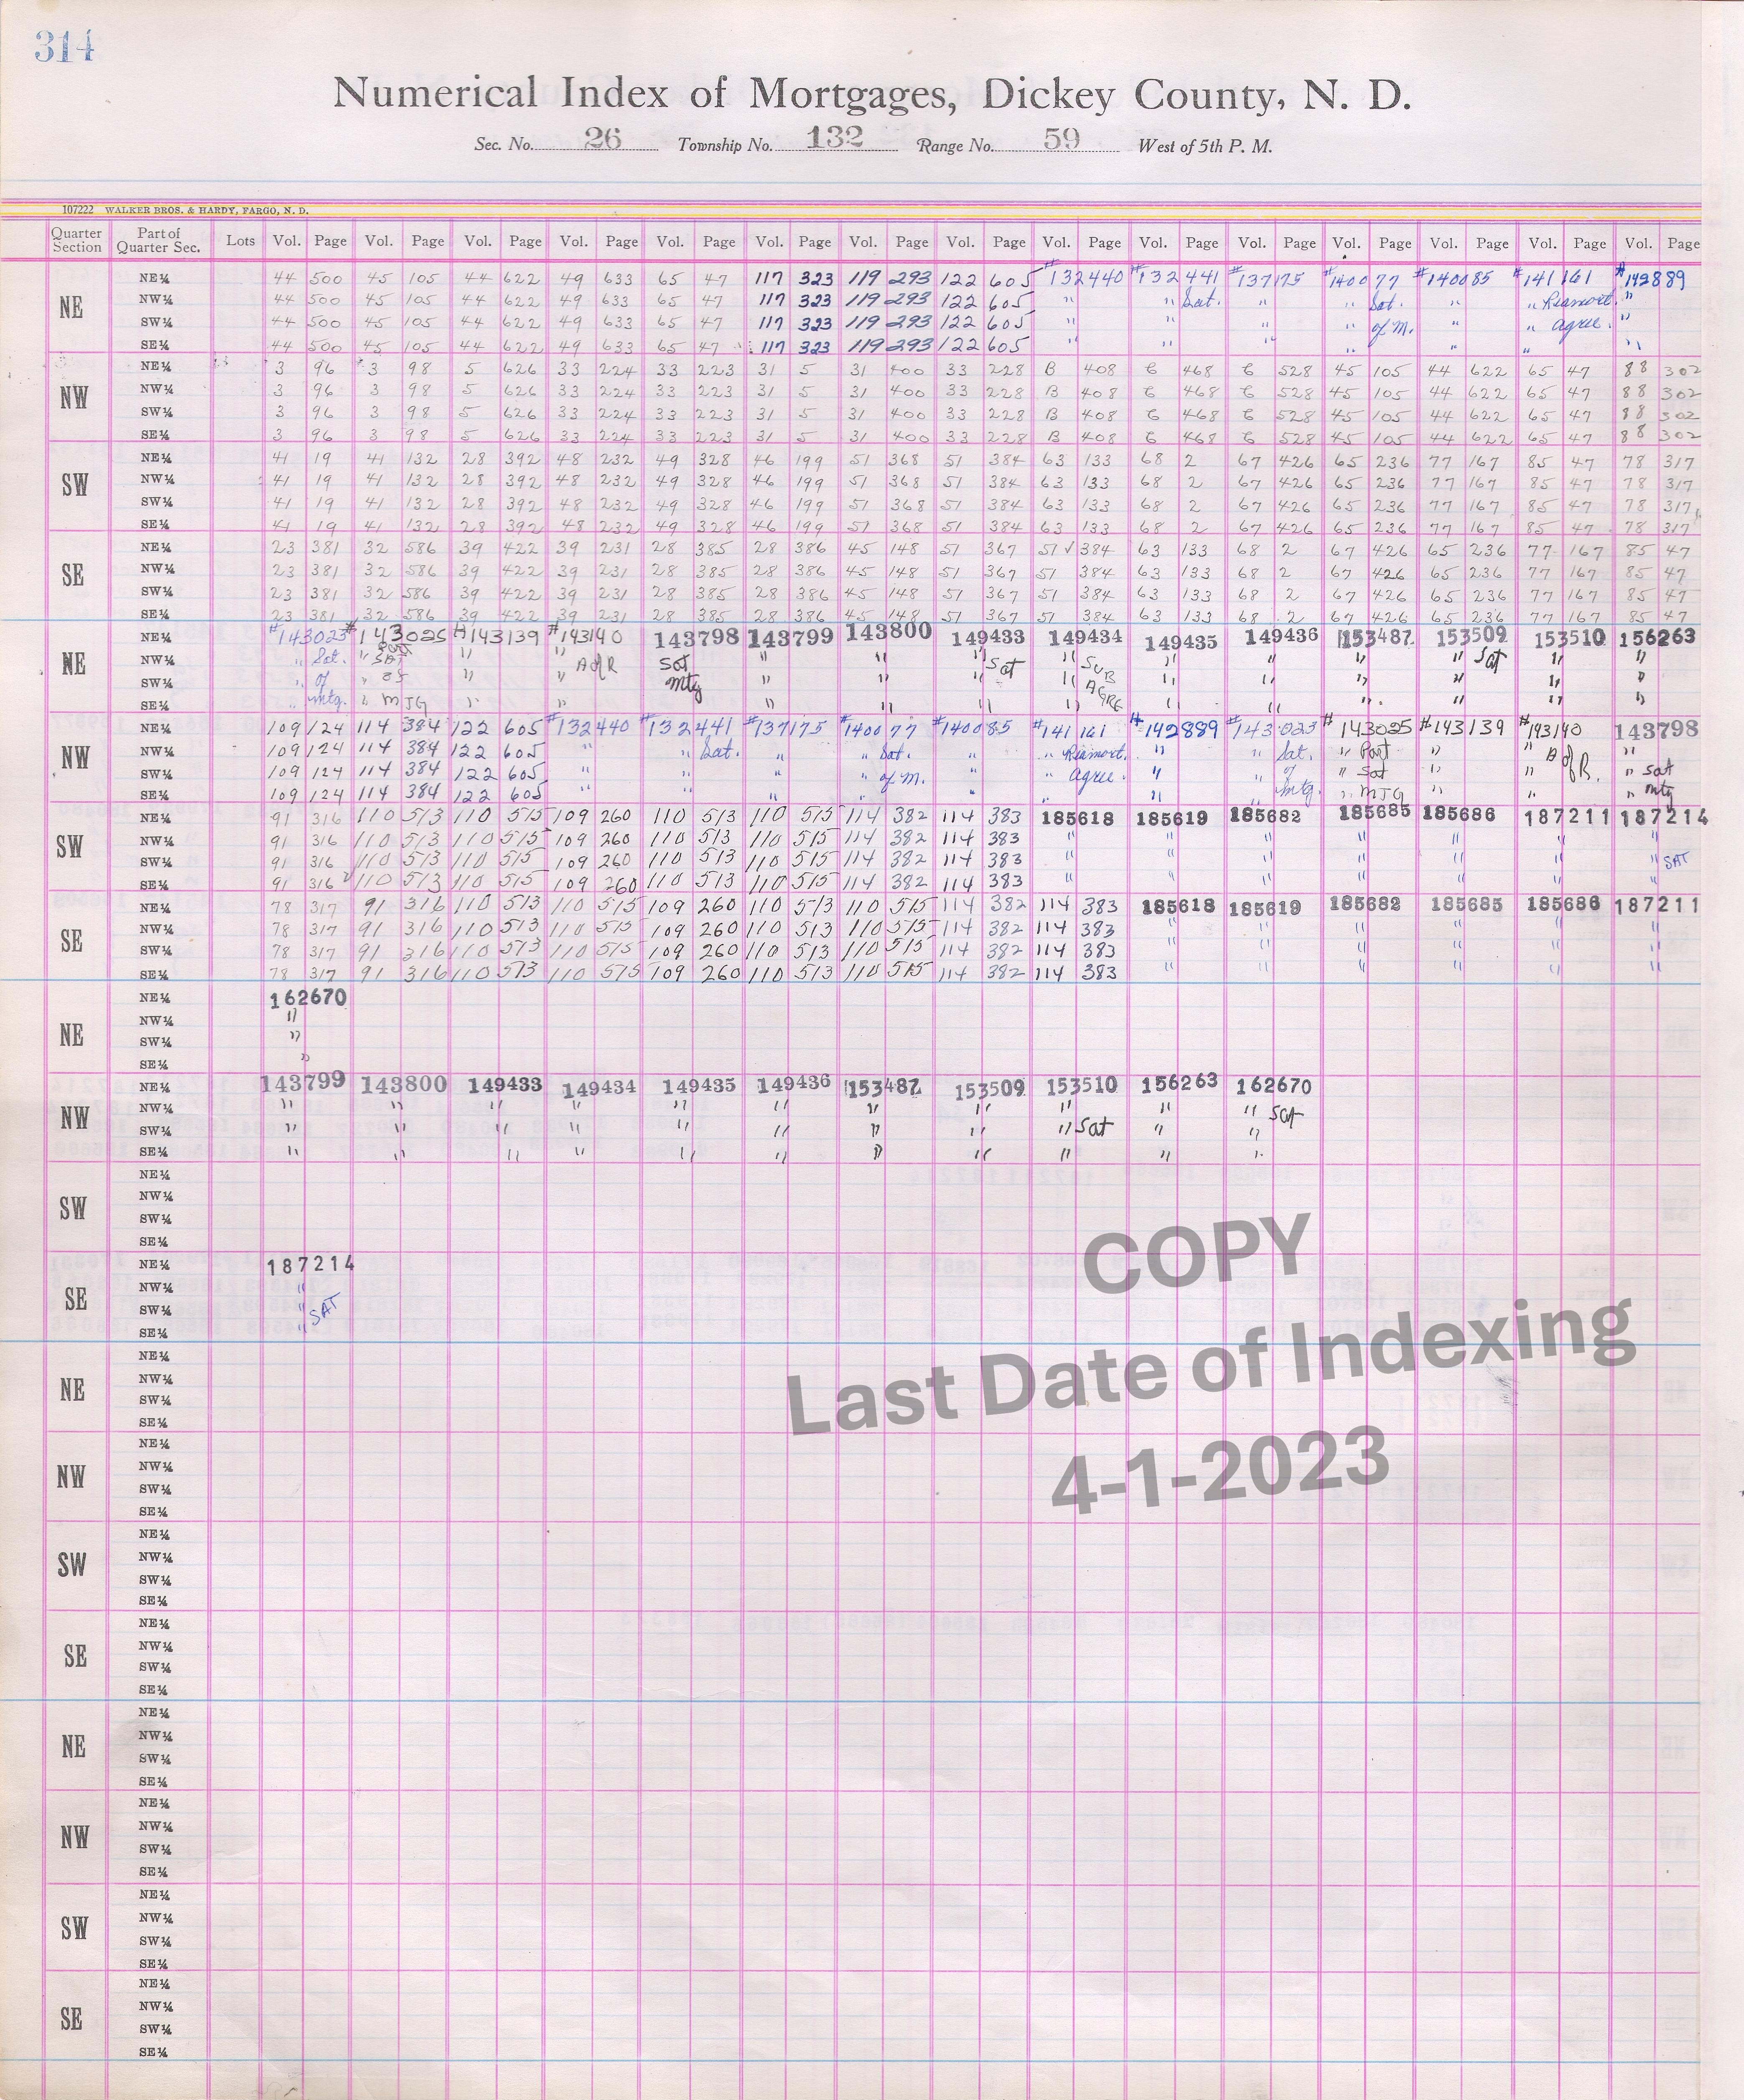 314
Numerical Index of Mortgages, Dickey County, N. D.
Sec. No. 26 Township No. 132 Range No. 59 West of 5th P. M.
107222 WALKER BROS. & HARDY, FARGO, N. D.
Quarter Section Part of Quarter Sec. Lots Vol. Page Vol. Page Vol. Page Vol. Page Vol. Page Vol. Page Vol. Page Vol. Page Vol. Page Vol. Page Vol. Page Vol. Page Vol. Page Vol. Page Vol. Page
NE
NE¼ 44 500 45 105 44 622 49 633 65 47 117 323 119 293 122 605 #132440 #132441 #137175 #140077 #140085 #141161 #142889
NW¼ 44 500 45 105 44 622 49 633 65 47 117 323 119 293 122 605 " " Sat. " " Sat. " " "
SW¼ 44 500 45 105 44 622 49 633 65 47 117 323 119 293 122 605 " " " " of M. " " agree. "
SE¼ 44 500 45 105 44 622 49 633 65 47 117 323 119 293 122 605 " " " " " " "
NW
NE¼ 3 96 3 98 5 626 33 224 33 223 31 5 31 400 33 228 B 408 468 528 45 105 44 622 65 47 88 302
NW¼ 3 96 3 98 5 626 33 224 33 223 31 5 31 400 33 228 B 408 468 528 45 105 44 622 65 47 88 302
SW¼ 3 96 3 98 5 626 33 224 33 223 31 5 31 400 33 228 B 408 468 528 45 105 44 622 65 47 88 302
SE¼ 3 96 3 98 5 626 33 224 33 223 31 5 31 400 33 228 B 408 468 528 45 105 44 622 65 47 88 302
SW
NE¼ 41 19 41 132 28 392 48 232 49 328 46 199 51 368 51 384 63 133 68 2 67 426 65 236 77 167 85 47 78 317
NW¼ 41 19 41 132 28 392 48 232 49 328 46 199 51 368 51 384 63 133 68 2 67 426 65 236 77 167 85 47 78 317
SW¼ 41 19 41 132 28 392 48 232 49 328 46 199 51 368 51 384 63 133 68 2 67 426 65 236 77 167 85 47 78 317
SE¼ 41 19 41 132 28 392 48 232 49 328 46 199 51 368 51 384 63 133 68 2 67 426 65 236 77 167 85 47 78 317
SE
NE¼ 23 381 32 586 39 422 39 231 28 385 28 386 45 148 51 367 51 ✓ 384 63 133 68 2 67 426 65 236 77 167 85 47
NW¼ 23 381 32 586 39 422 39 231 28 385 28 386 45 148 51 367 51 384 63 133 68 2 67 426 65 236 77 167 85 47
SW¼ 23 381 32 586 39 422 39 231 28 385 28 386 45 148 51 367 51 384 63 133 68 2 67 426 65 236 77 167 85 47
SE¼ 23 381 32 586 39 422 39 231 28 385 28 386 45 148 51 367 51 384 63 133 68 2 67 426 65 236 77 167 85 47
NE
NE¼ #143023 #143025 #143139 #143140 143798 143799 143800 149433 149434 149435 149436 153487 153509 153510 156263
NW¼ " Sat. " Sat " " A of R Sat " " " Sat " SUB " " " " Sat " "
SW¼ " of " of " " Mtg " " " " AGRE " " " " " "
SE¼ " mtg. " MTG " " " " " " " " " " " "
NW
NE¼ 109 124 114 384 122 605 #132440 #132441 #137175 #140077 #140085 #141161 #142889 #143023 #143025 #143139 #143140 143798
NW¼ 109 124 114 384 122 605 " " Sat. " " Sat. " " " " Sat. " Part " " "
SW¼ 109 124 114 384 122 605 " " " " of M. " " agree. " " of " Sat " " of R. " Sat
SE¼ 109 124 114 384 122 605 " " " " " " " " mtg. " MTG " " " Mtg
SW
NE¼ 91 316 110 513 110 515 109 260 110 513 110 515 114 382 114 383 185618 185619 185682 185685 185686 187211 187214
NW¼ 91 316 110 513 110 515 109 260 110 513 110 515 114 382 114 383 " " " " " " "
SW¼ 91 316 110 513 110 515 109 260 110 513 110 515 114 382 114 383 " " " " " " " SAT
SE¼ 91 316 110 513 110 515 109 260 110 513 110 515 114 382 114 383 " " " " " " "
SE
NE¼ 78 317 91 316 110 513 110 515 109 260 110 513 110 515 114 382 114 383 185618 185619 185682 185685 185686 187211
NW¼ 78 317 91 316 110 513 110 515 109 260 110 513 110 515 114 382 114 383 " " " " " "
SW¼ 78 317 91 316 110 513 110 515 109 260 110 513 110 515 114 382 114 383 " " " " " "
SE¼ 78 317 91 316 110 513 110 515 109 260 110 513 110 515 114 382 114 383 " " " " " "
NE
NE¼ 162670
NW¼ "
SW¼ "
SE¼ "
NW
NE¼ 143799 143800 149433 149434 149435 149436 153487 153509 153510 156263 162670
NW¼ " " " " " " " " " " " Sat
SW¼ " " " " " " " " " Sat " "
SE¼ " " " " " " " " " " "
SW
NE¼
NW¼
SW¼
SE¼
SE
NE¼ 187214
NW¼ "
SW¼ " SAT
SE¼ "
NE
NE¼
NW¼
SW¼
SE¼
NW
NE¼
NW¼
SW¼
SE¼
SW
NE¼
NW¼
SW¼
SE¼
SE
NE¼
NW¼
SW¼
SE¼
NE
NE¼
NW¼
SW¼
SE¼
NW
NE¼
NW¼
SW¼
SE¼
SW
NE¼
NW¼
SW¼
SE¼
SE
NE¼
NW¼
SW¼
SE¼
COPY
Last Date of Indexing
4-1-2023